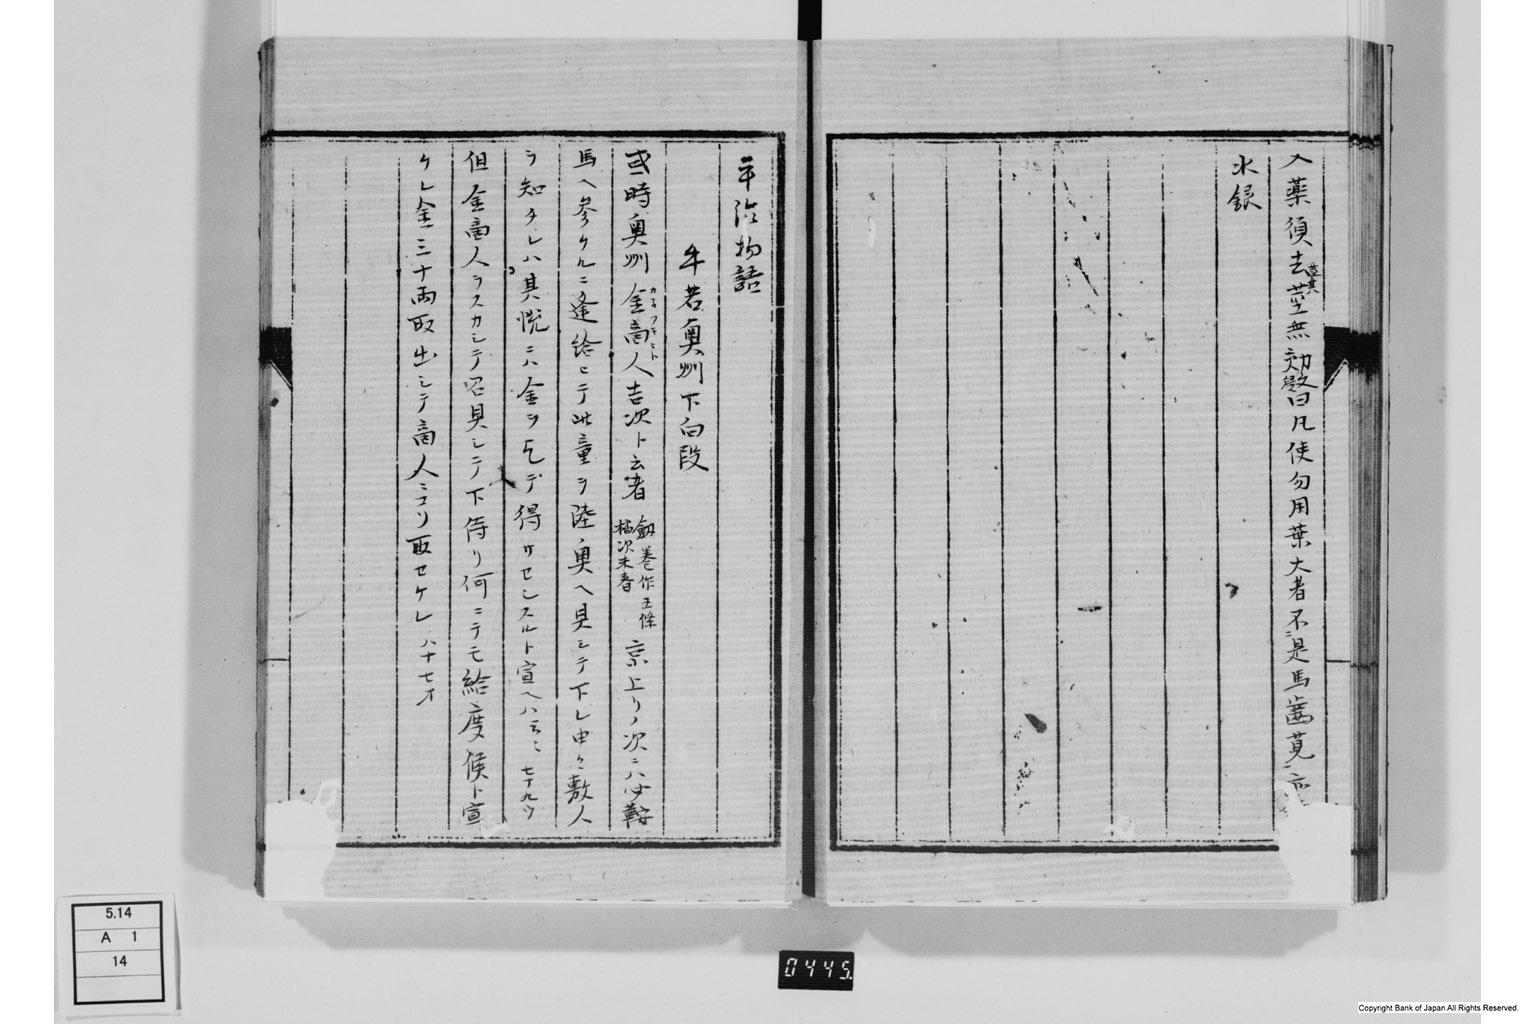 入薬須去莖無効斅曰凡使勿用葉大者不是馬齒莧亦
水銀
平治物語
牛若奥州下向段
或時奥州金商人吉次ト云者 劔巻作五條橘次末春 京上リノ次ニハ必鞍
馬ヘ参ケルニ逢給ヒテ此童ヲ陸奥ヘ具シテ下レ申々敷人
ヲ知タレハ其悦ニハ金ヲ乞デ得サセンスルト宣ヘハ云々 七十九ウ
但金商人ヲスカシテ召具シテ下侍リ何ニテモ給度候ト宣
ケレ金三十兩取出シテ商人ニコソ取セケレ 八十七オ
5.14
A 1
14
0445
Copyright Bank of Japan All Rights Reserved.